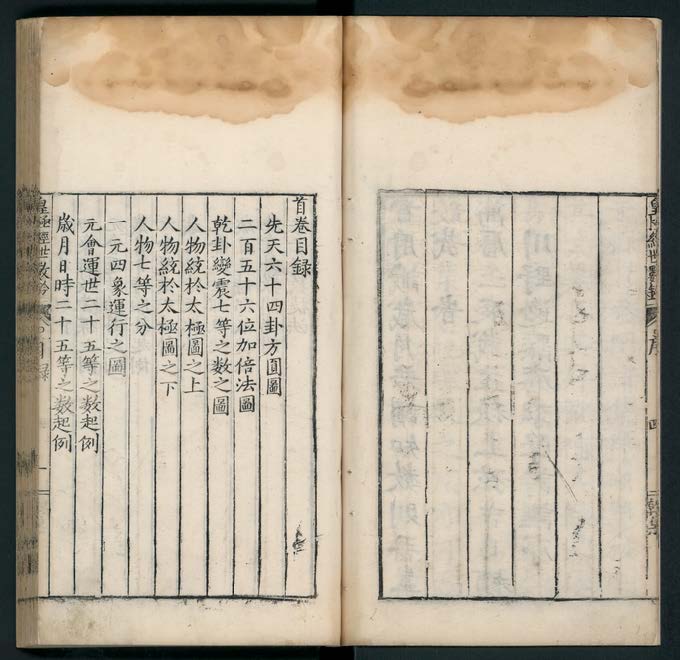 首卷目錄
先天六十四卦方圓圖
二百五十六位加倍法圖
乾卦變震七等之数之圖
人物統於太極圖之上
人物統於太極圖之下
人物七等之分
一元四象運行之圖
元會運世二十五等之数起例
歲月日時二十五等之数起例